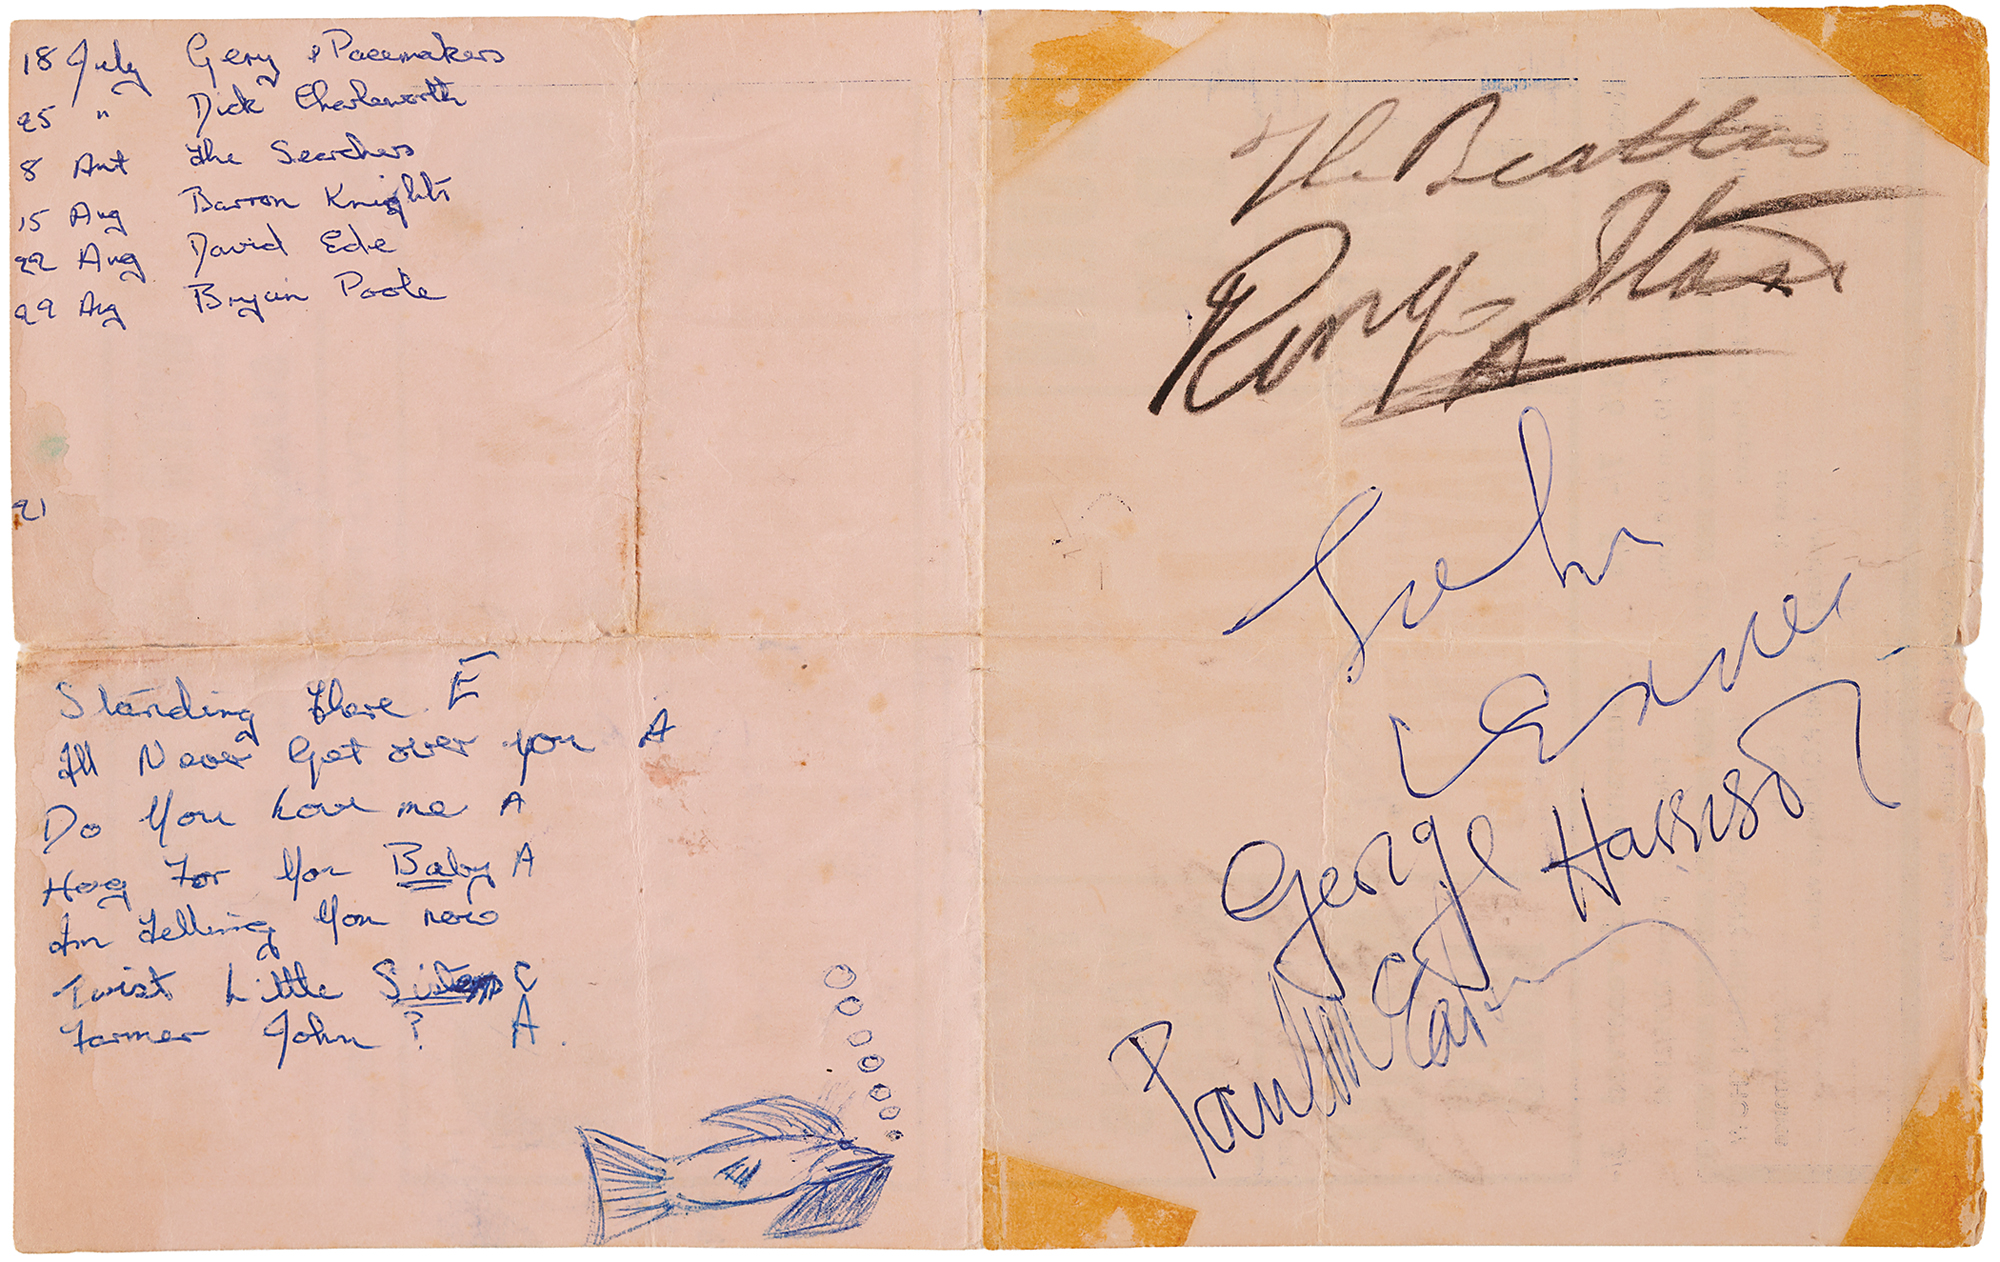 18 July Gerry & Pacemakers
25 " Dick Charlesworth
8 Aut The Searchers
15 Aug Barron Knights
22 Aug David Ede
29 Aug Bryan Poole
21
Standing there E
Ill Never Get over you A
Do You Love me A
Hog For You Baby A
Im Telling You now
Twist Little Sister C
Farmer John ? A
The Beatles
Ringo Starr
John
Lennon
George Harrison
Paul McCartney